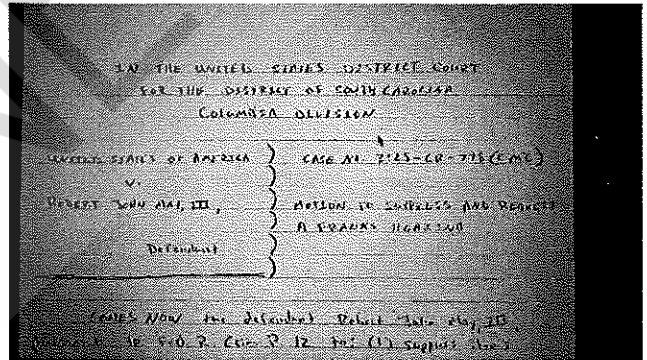 IN THE UNITED STATES DISTRICT COURT
FOR THE DISTRICT OF SOUTH CAROLINA
COLUMBIA DIVISION
UNITED STATES OF AMERICA ) CASE NO.
V. )
ROBERT JOHN MAY, III, ) MOTION TO SUPPRESS AND REQUEST
) A FRANKS HEARING
Defendant )
COMES NOW the defendant Robert John May, III
to FED. R. Crim. P. 12 (1) suppress